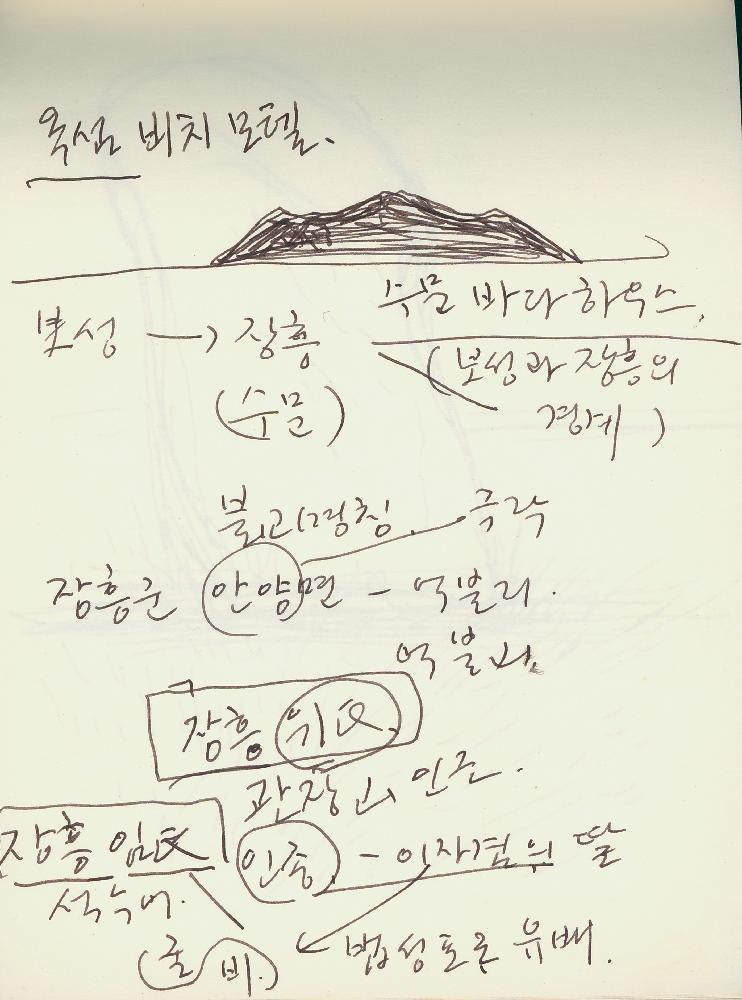 옥섬 비치 모텔.
수문 바다하우스.
보성 → 장흥
(보성과 장흥의
(수문)
경계)
불교명칭 극락
장흥군 안양면 - 억불리.
장흥 위氏
인근.
장흥 임氏 인종 - 이자겸의 딸
(굴비.) 법성포로 유배.